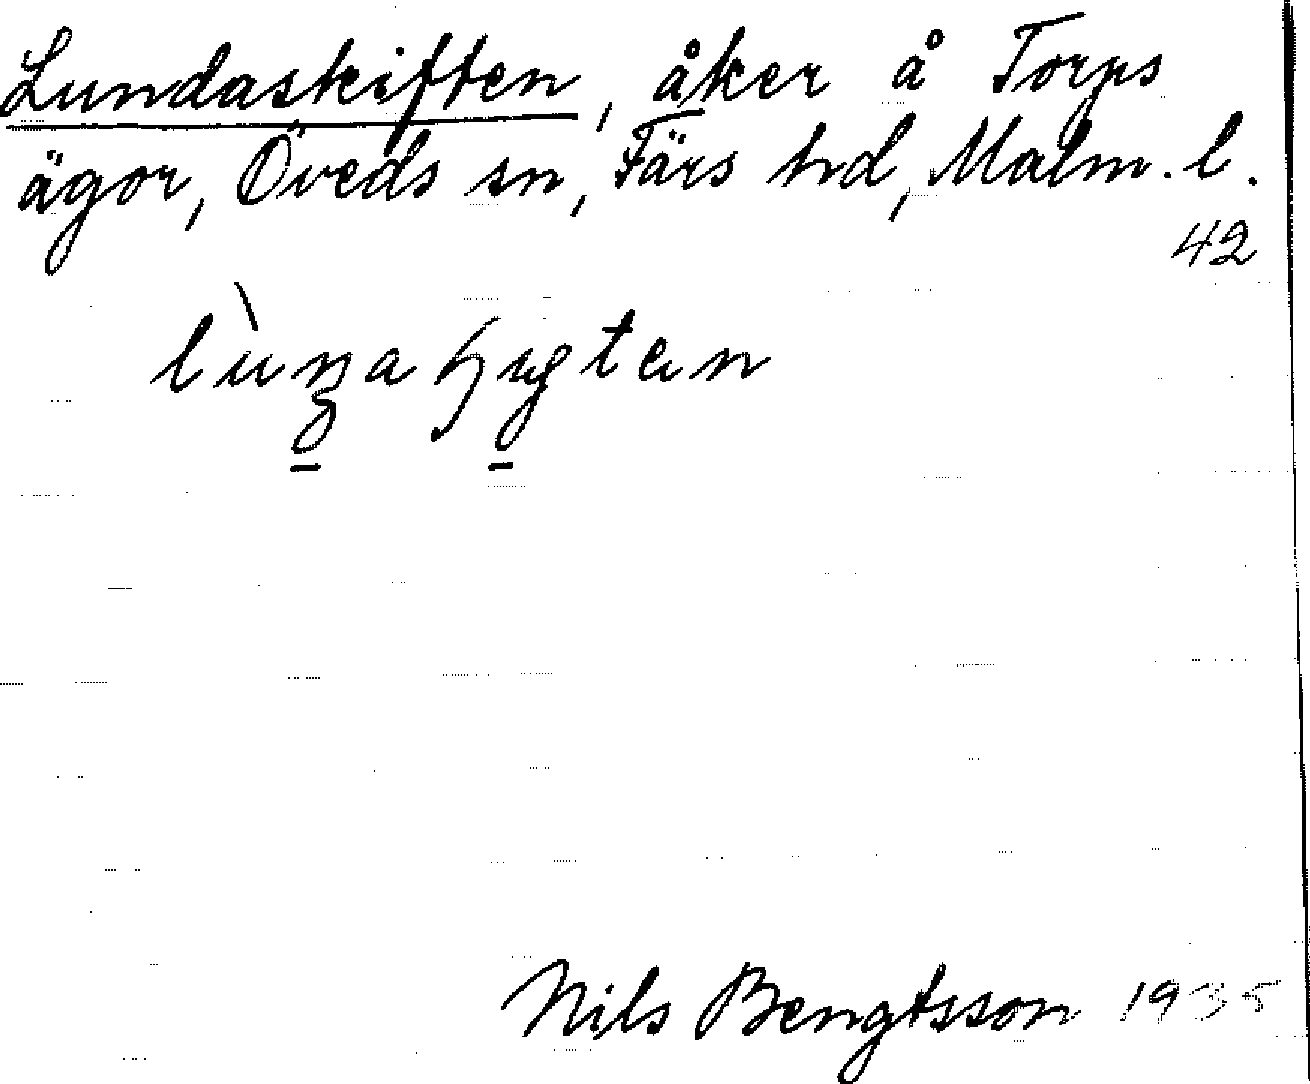 Lundaskiften, åker å Torps
ägor, Öveds sn, Färs hd, Malm. l.
42
Nils Bengtsson 1935